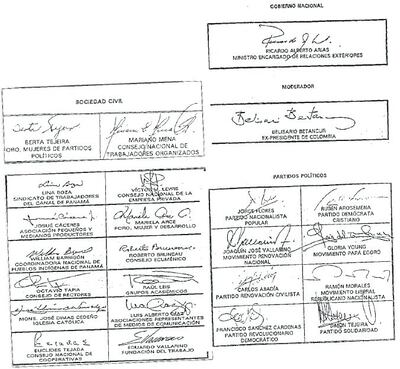 GOBIERNO NACIONAL
RICARDO ALBERTO ARIAS
MINISTRO ENCARGADO DE RELACIONES EXTERIORES
MODERADOR
Belisario Betancur
BELISARIO BETANCUR
EX-PRESIDENTE DE COLOMBIA
SOCIEDAD CIVIL
BERTA TEJEIRA
FORO, MUJERES DE PARTIDOS
POLÍTICOS
MARIANO MENA
CONSEJO NACIONAL DE
TRABAJADORES ORGANIZADOS
LINA BOZA
SINDICATO DE TRABAJADORES
DEL CANAL DE PANAMÁ
VÍCTOR M. LEVRE
CONSEJO NACIONAL DE LA
EMPRESA PRIVADA
ASOCIACIÓN PEQUEÑOS Y
MEDIANOS PRODUCTORES
MARIELA ARCE
FORO, MUJER Y DESARROLLO
WILLIAM BARRIGÓN
COORDINADORA NACIONAL DE
PUEBLOS INDÍGENAS DE PANAMÁ
ROBERTO BRUNEAU
CONSEJO ECUMÉNICO
OCTAVIO TAPIA
CONSEJO DE RECTORES
RAÚL LEIS
GRUPOS ACADÉMICOS
MONS. JOSÉ DIMAS CEDEÑO
IGLESIA CATÓLICA
LUIS ALBERTO DÍAZ
ASOCIACIONES REPRESENTANTES
DE MEDIOS DE COMUNICACIÓN
EUCLIDES TEJADA
CONSEJO NACIONAL DE
COOPERATIVAS
EDUARDO VALLARINO
FUNDACIÓN DEL TRABAJO
PARTIDOS POLÍTICOS
JORGE FLORES
PARTIDO NACIONALISTA
POPULAR
RUBÉN AROSEMENA
PARTIDO DEMÓCRATA
CRISTIANO
JOAQUÍN JOSÉ VALLARINO
MOVIMIENTO RENOVACIÓN
NACIONAL
GLORIA YOUNG
MOVIMIENTO PAPA EGORO
CARLOS ABADÍA
PARTIDO RENOVACIÓN CIVILISTA
RAMÓN MORALES
MOVIMIENTO LIBERAL
REPUBLICANO NACIONALISTA
FRANCISCO SÁNCHEZ CÁRDENAS
PARTIDO REVOLUCIONARIO
DEMOCRÁTICO
TEJEIRA
PARTIDO SOLIDARIDAD